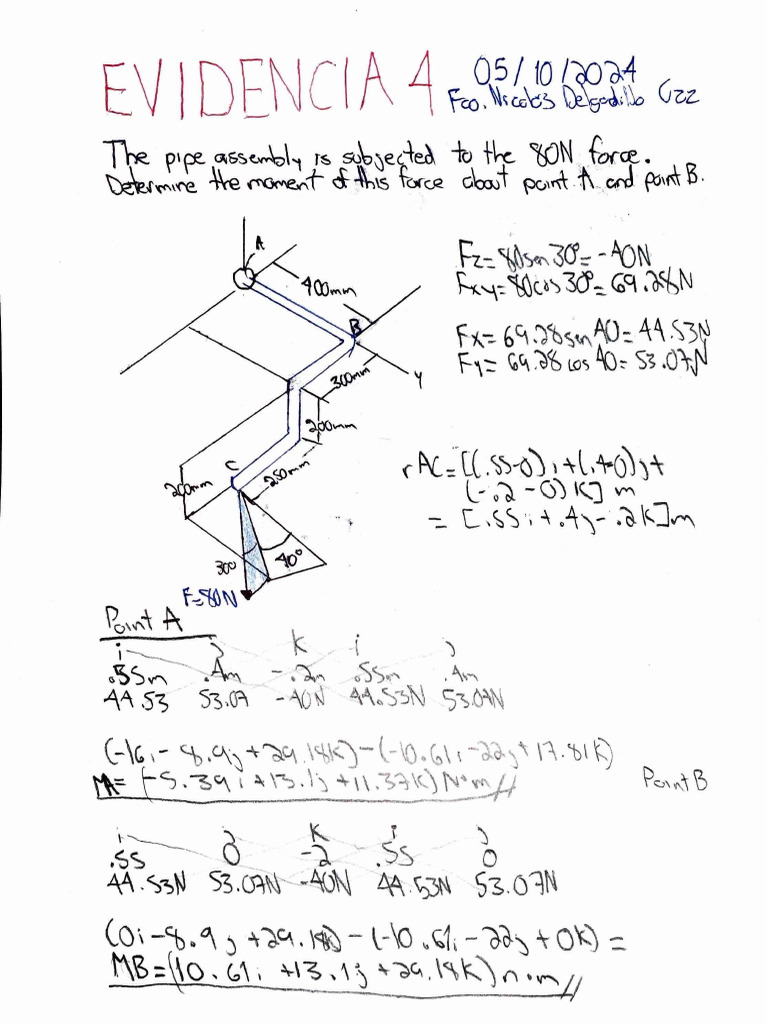 EVIDENCIA 4
05/10/2024
Fco. Nicolás Delgadillo Gzz
The pipe assembly is subjected to the 80N force.
Determine the moment of this force about point A and point B.
A
400mm
B
Y
300mm
200mm
C
250mm
200mm
30°
40°
F=80N
Fz=80sen30°=-40N
Fxy=80cos30°=69.28N
Fx=69.28sen40=44.53N
Fy=69.28cos40=53.07N
rAC=[(.55-0)i+(.4-0)j+
(-.2-0)k]m
=[.55i+.4j-.2k]m
Point A
i j k i j
.55m .4m -.2m .55m .4m
44.53 53.07 -40N 44.53N 53.07N
(-16i-8.9j+29.18k)-(-10.61i-22j+17.81k)
MA=(-5.39i+13.1j+11.37k)N·m//
Point B
i j k i j
.55 0 -2 .55 0
44.53N 53.07N -40N 44.53N 53.07N
(0i-8.9j+29.18k)-(-10.61i-22j+0k)=
MB=(10.61i+13.1j+29.18k)n·m//